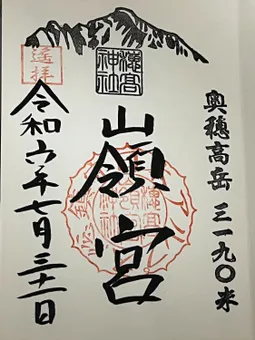 奥穂高岳 三一九〇米
穂髙
神社
嶺宮
遥拝
令和六年七月三十一日